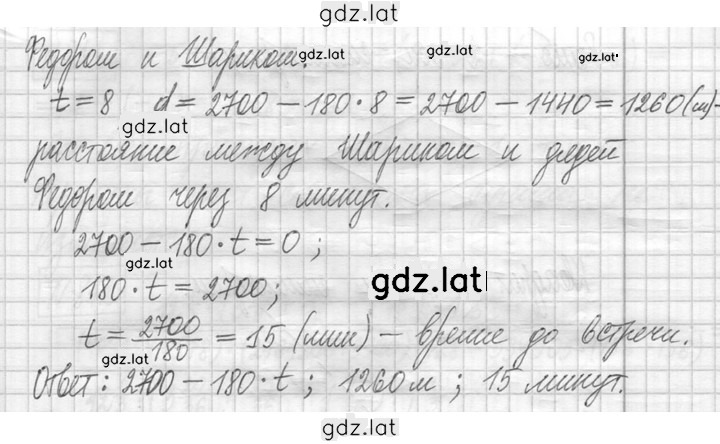 gdz.lat
Федором и Шариком.
gdz.lat
gdz.lat
gdz.lat
t = 8 d = 2700 − 180 · 8 = 2700 − 1440 = 1260 (м) −
gdz.lat
расстояние между Шариком и дядей
Федором через 8 минут.
2700 − 180 · t = 0 ;
gdz.lat
180 · t = 2700 ;
gdz.lat
t = 2700/180 = 15 (мин) − время до встречи.
gdz.lat
Ответ: 2700 − 180 · t ; 1260 м ; 15 минут.
gdz.lat